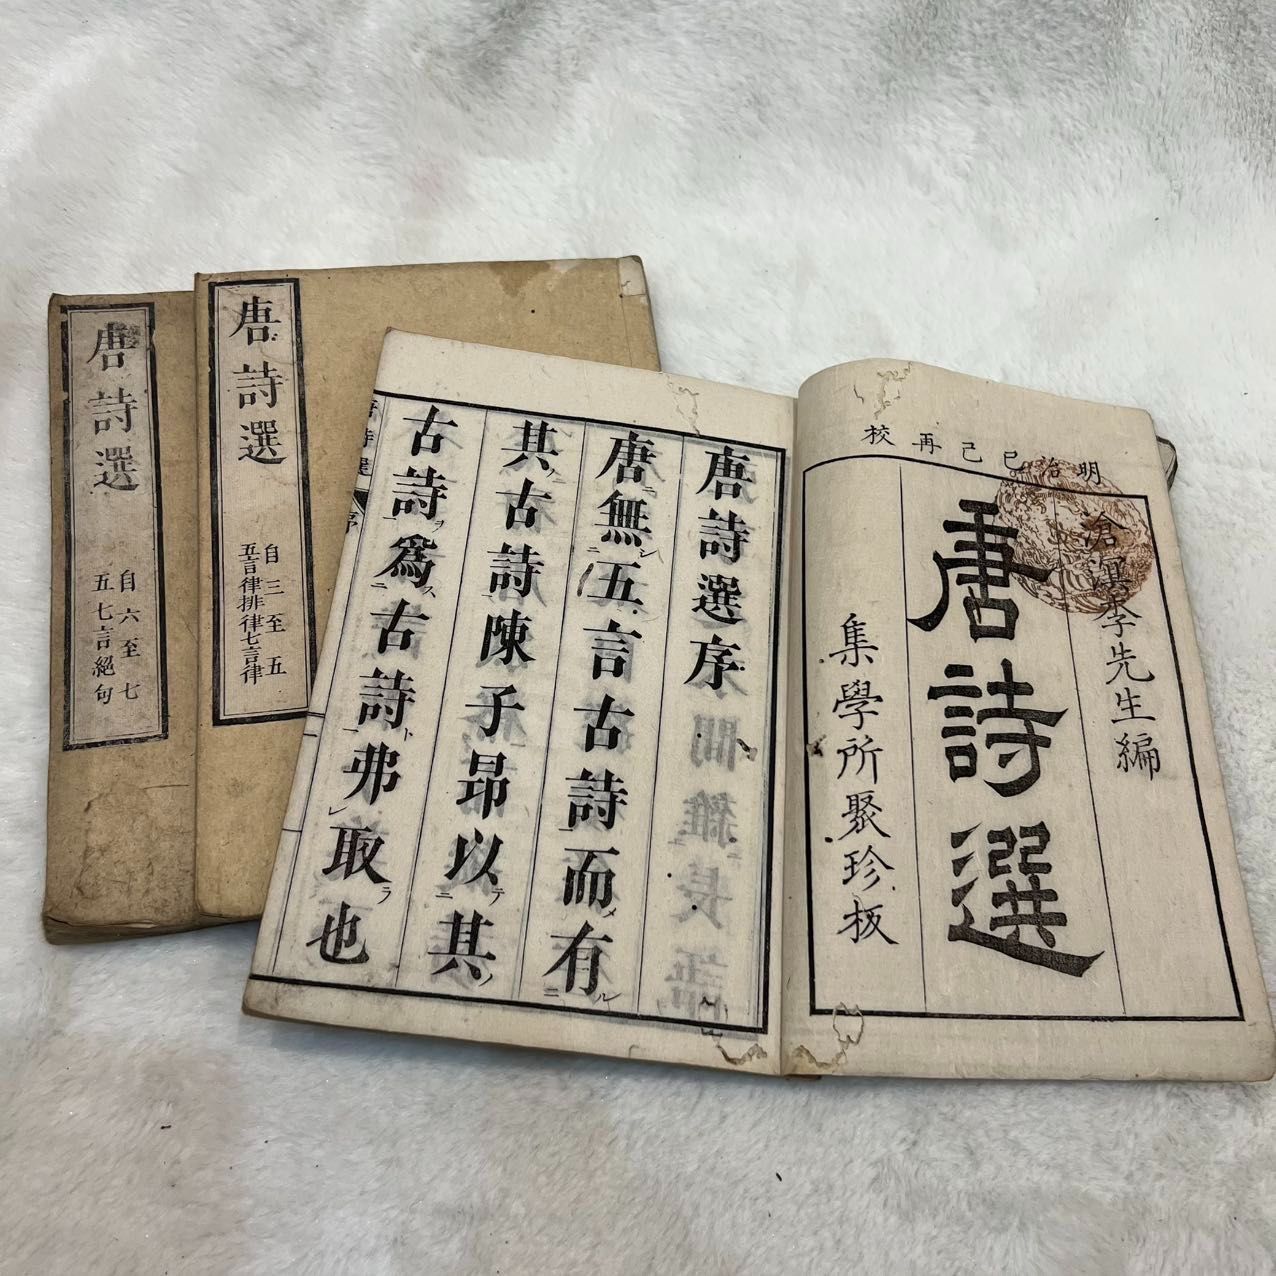 明治己巳再校
滄溟李先生編
唐詩選
集學所聚珍板
唐詩選序
唐無五言古詩而有
其古詩陳子昂以其
古詩爲古詩弗取也
唐詩選
自三至五
五言律排律七言律
唐詩選
自六至七
五七言絕句